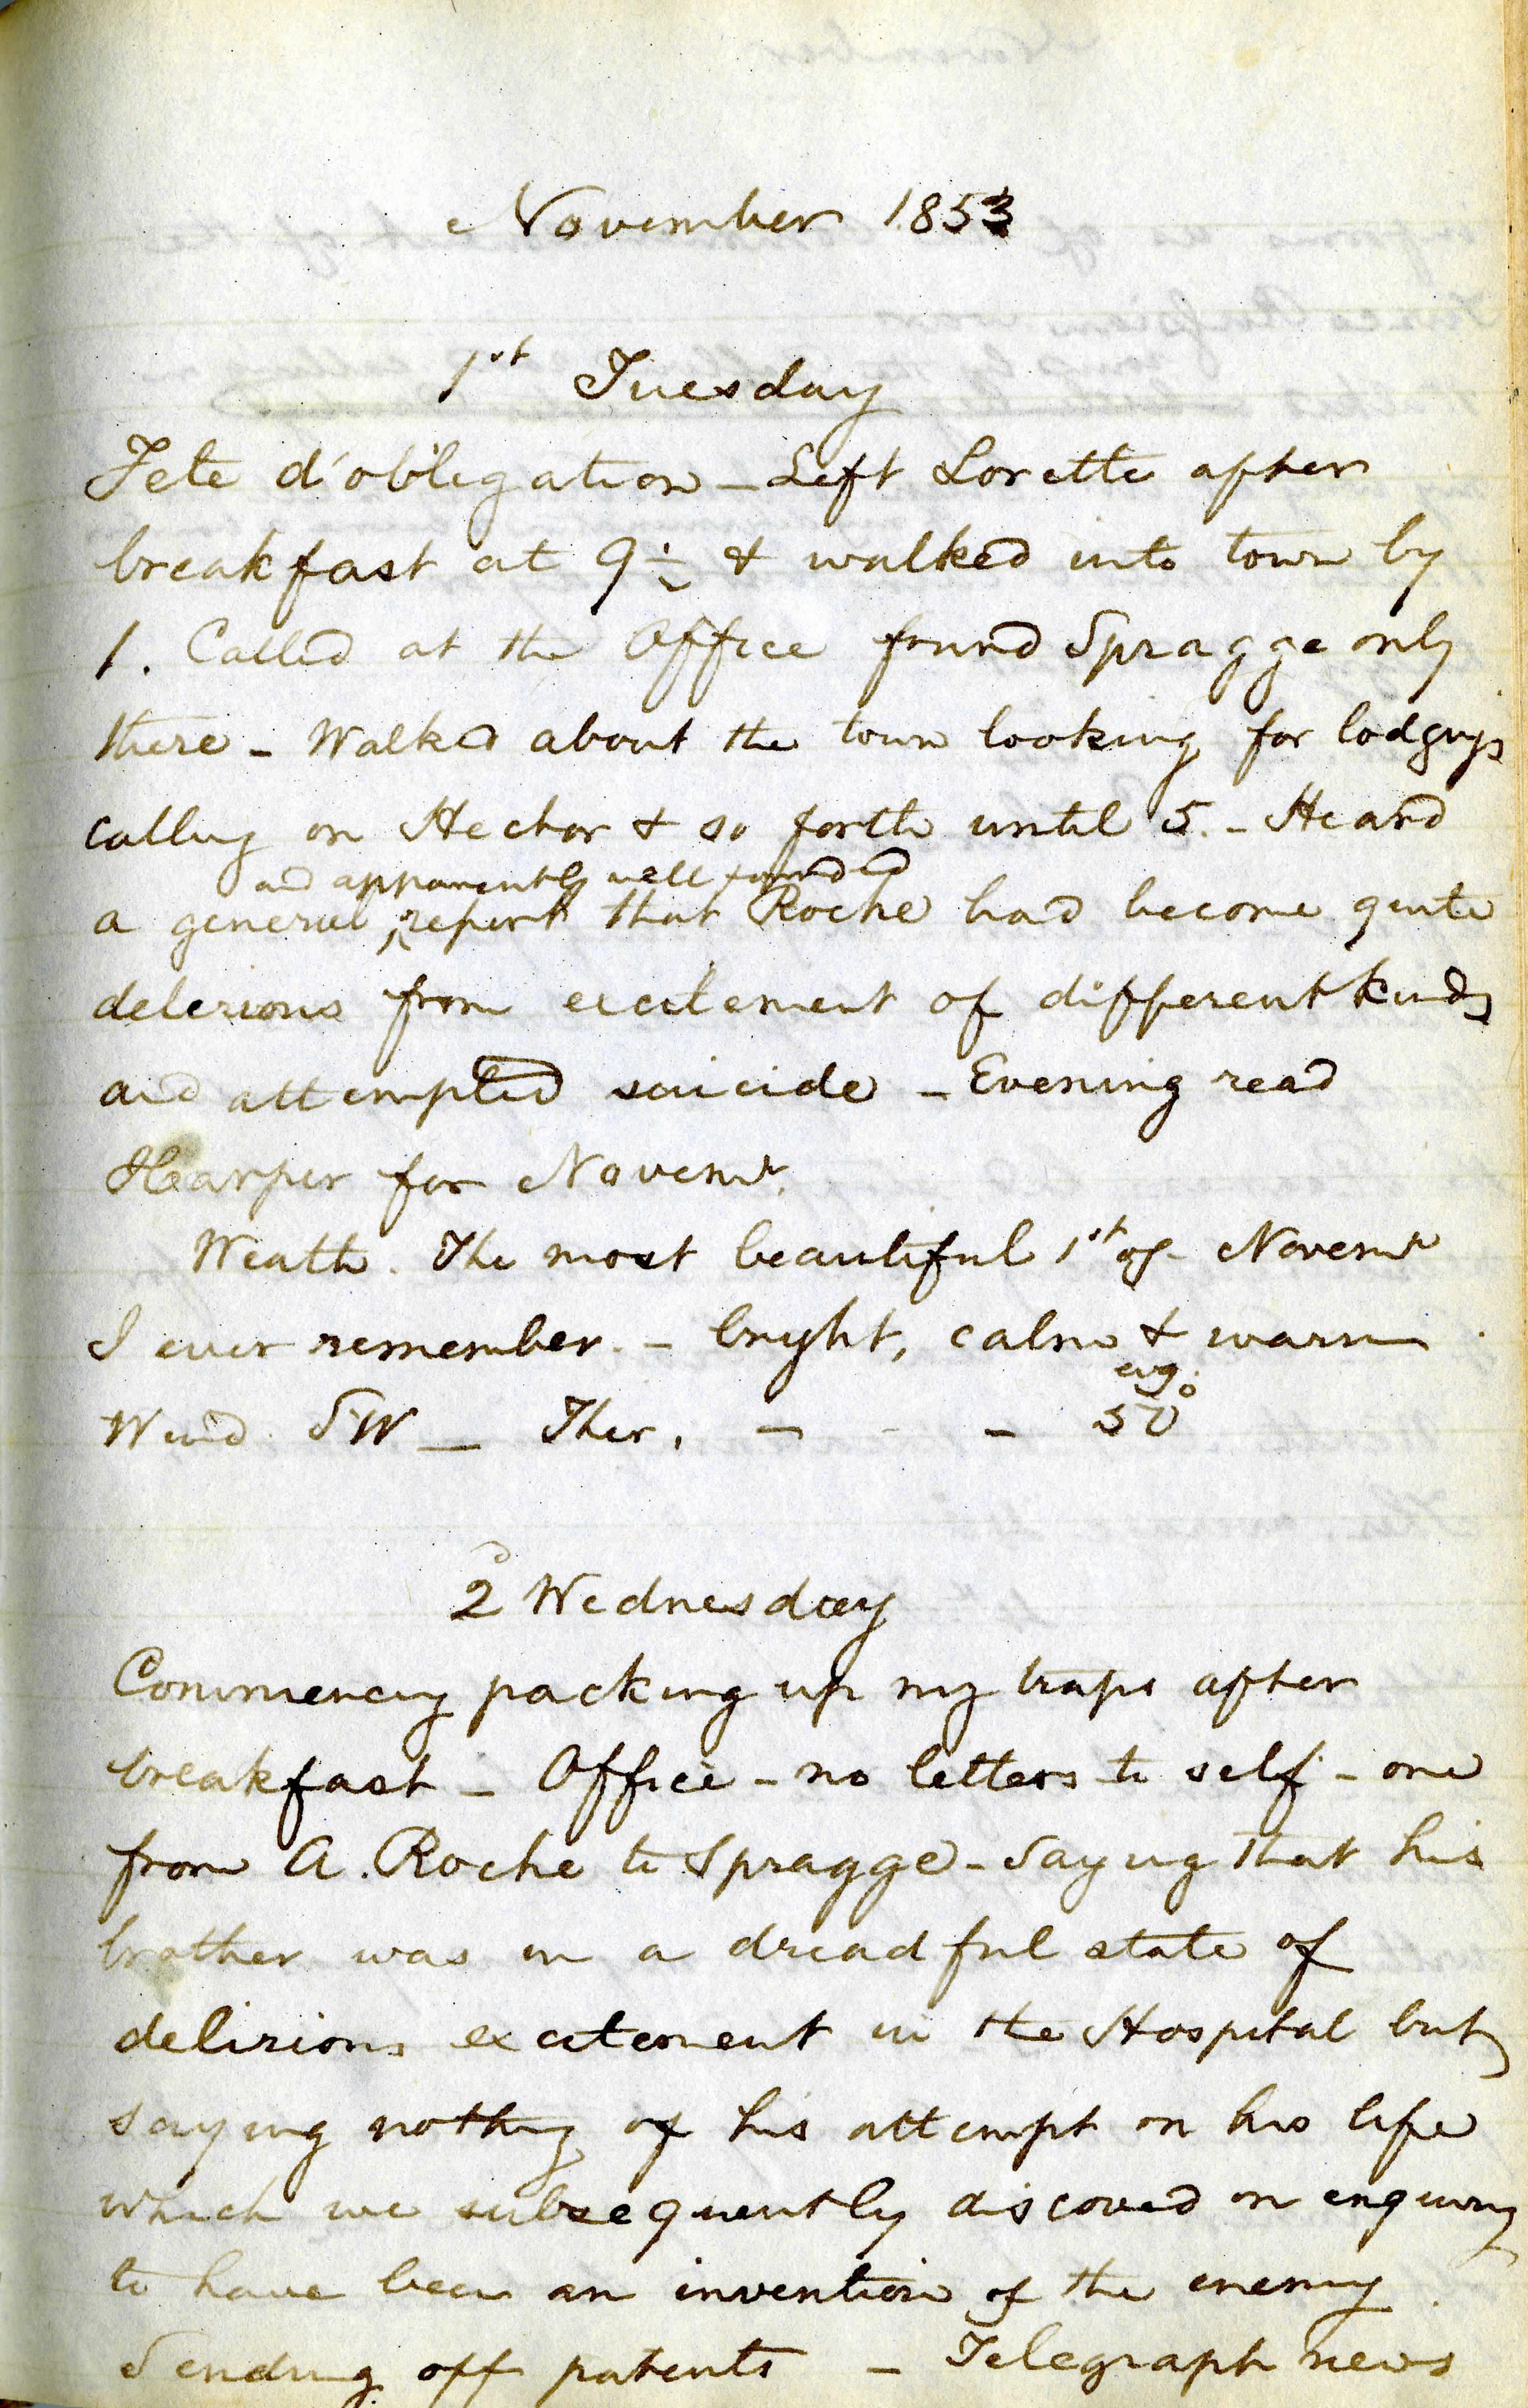 November 1853
1st Tuesday
Fete d'obligation - Left Lorette after
breakfast at 9½ & walked into town by
1. Called at the Office found Spragge only
there - Walked about the town looking for lodgings
calling on Hector & so forth until 5. - Heard
and apparently well founded
a general report that Roche had become quite
delerious from excitement of different kinds
and attempted suicide - Evening read
Harper for Novemr.
Weath. The most beautiful 1st of Novemr
I ever remember. - bright, calm & warm
evg.
Wind SW - Ther. - - - 50°
2d Wednesday
Commencing packing up my traps after
breakfast - Office - no letters to self - one
from A. Roche to Spragge - Saying that his
brother was in a dreadful state of
delirious excitement in the Hospital but
saying nothing of his attempt on his life
which we subsequently discoved on enquiry
to have been an invention of the enemy.
Sending off patents - Telegraph news